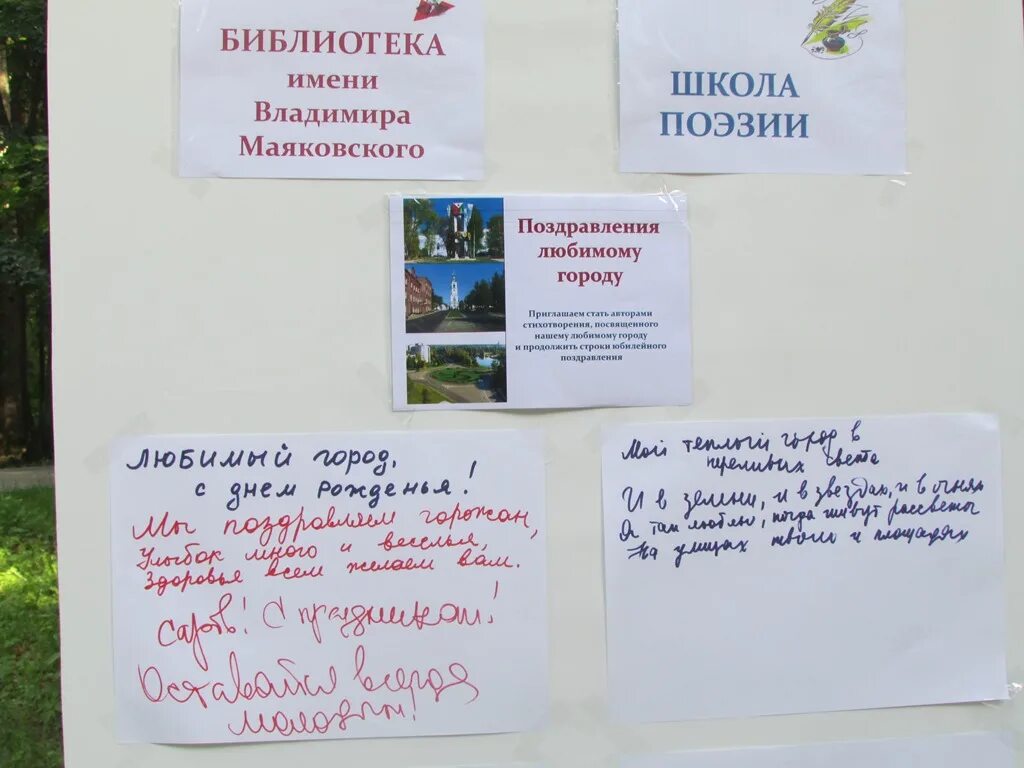 БИБЛИОТЕКА
имени
Владимира
Маяковского
ШКОЛА
ПОЭЗИИ
Поздравления
любимому
городу
Приглашаем стать авторами
стихотворения, посвященного
нашему любимому городу
и продолжить строки юбилейного
поздравления
ЛЮБИМЫЙ ГОРОД,
с днем рожденья!
Мы поздравляем горожан,
Улыбок много и веселья,
Здоровья всем желаем вам.
Саров! С праздником!
Оставайся всегда
молодым!
Мой теплый город в
переливах света
И в зелени, и в звездах, и в огнях
Я так люблю, когда живут рассветы
На улицах твоих и площадях